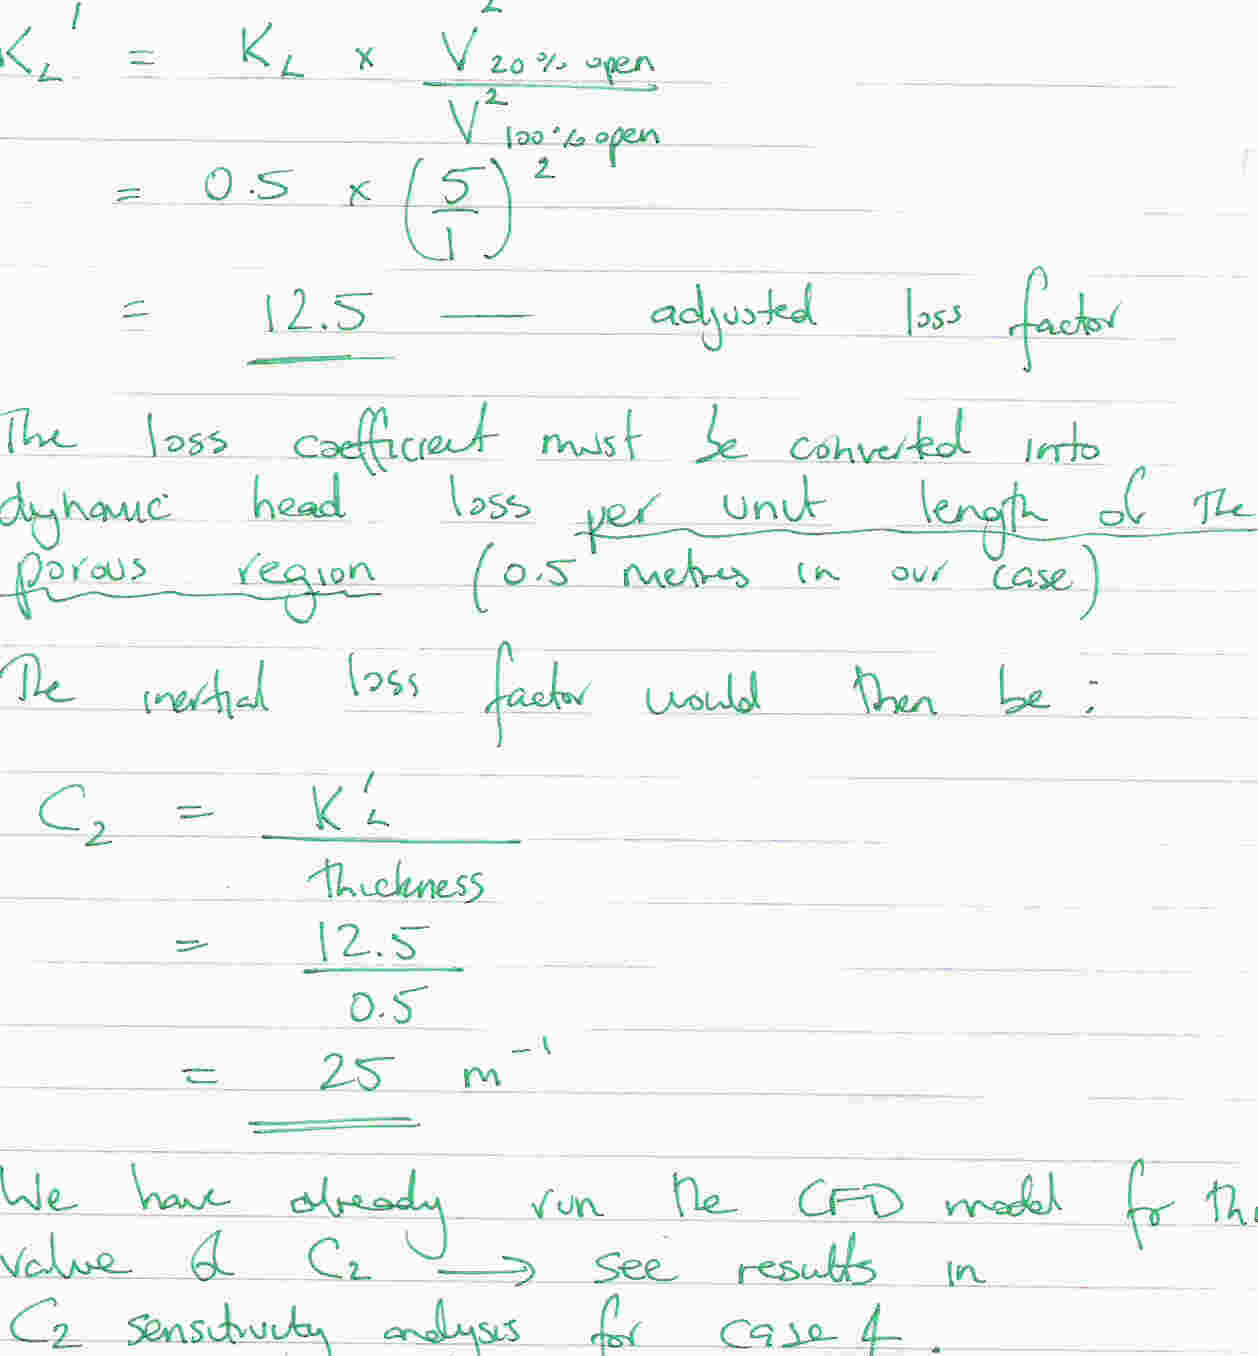 K_L' = K_L × V²_20% open
V²_100% open
= 0.5 × (5/1)²
= 12.5 — adjusted loss factor
The loss coefficient must be converted into
dynamic head loss per unit length of the
porous region (0.5 metres in our case)
The inertial loss factor would then be :
C₂ = K'_L
thickness
= 12.5
0.5
= 25 m⁻¹
We have already run the CFD model for thi
value of C₂ → see results in
C₂ sensitivity analysis for case 4.